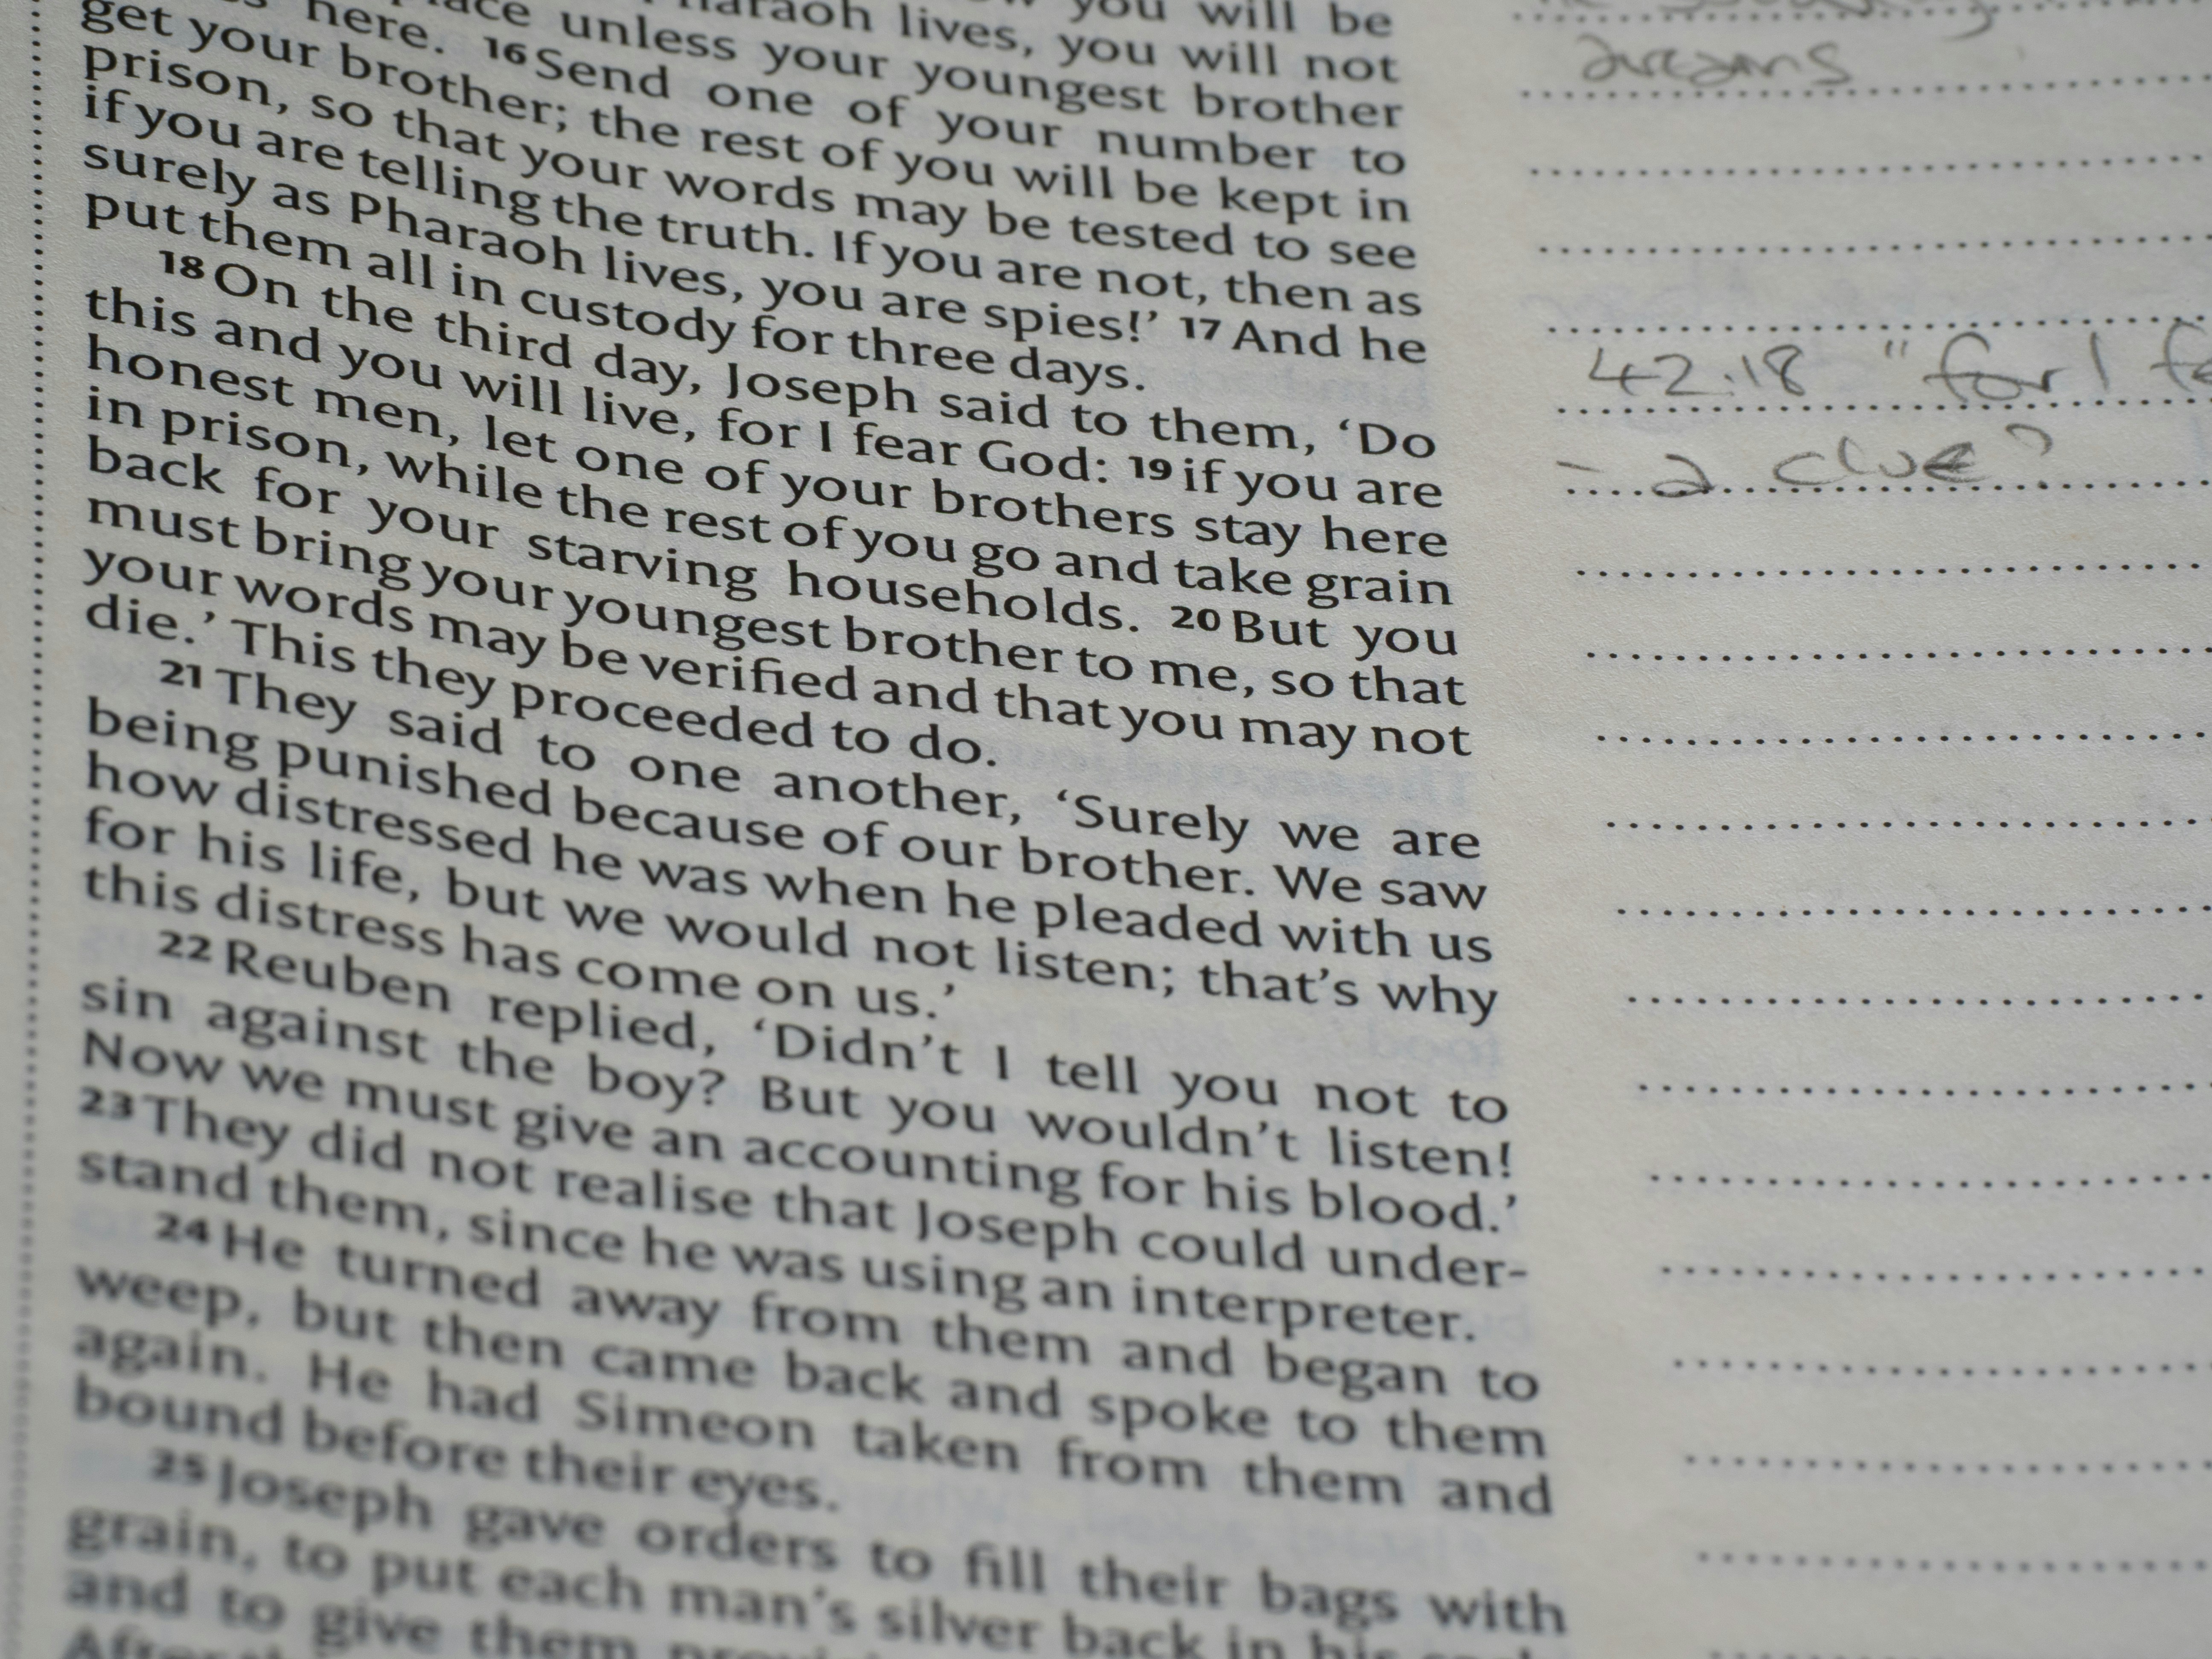 you will be
place unless your Pharaoh lives, you will not
here. 16 Send one of your youngest brother
get your brother; the rest of your number to
prison, so that your words of you will be kept in
if you are telling the truth. may be tested to see
surely as Pharaoh lives, If you are not, then as
put them all in custody you are spies!’ 17 And he
for three days.
18 On the third day, Joseph said to them, ‘Do
this and you will live, for I fear God: 19 if you are
honest men, let one of your brothers stay here
in prison, while the rest of you go and take grain
back for your starving households. 20 But you
must bring your youngest brother to me, so that
your words may be verified and that you may not
die.’ This they proceeded to do.
21 They said to one another, ‘Surely we are
being punished because of our brother. We saw
how distressed he was when he pleaded with us
for his life, but we would not listen; that’s why
this distress has come on us.’
22 Reuben replied, ‘Didn’t I tell you not to
sin against the boy? But you wouldn’t listen!
Now we must give an accounting for his blood.’
23 They did not realise that Joseph could under-
stand them, since he was using an interpreter.
24 He turned away from them and began to
weep, but then came back and spoke to them
again. He had Simeon taken from them and
bound before their eyes.
25 Joseph gave orders to fill their bags with
grain, to put each man’s silver back in his
and to give them
dreams
42.18 "for I
- a clue?